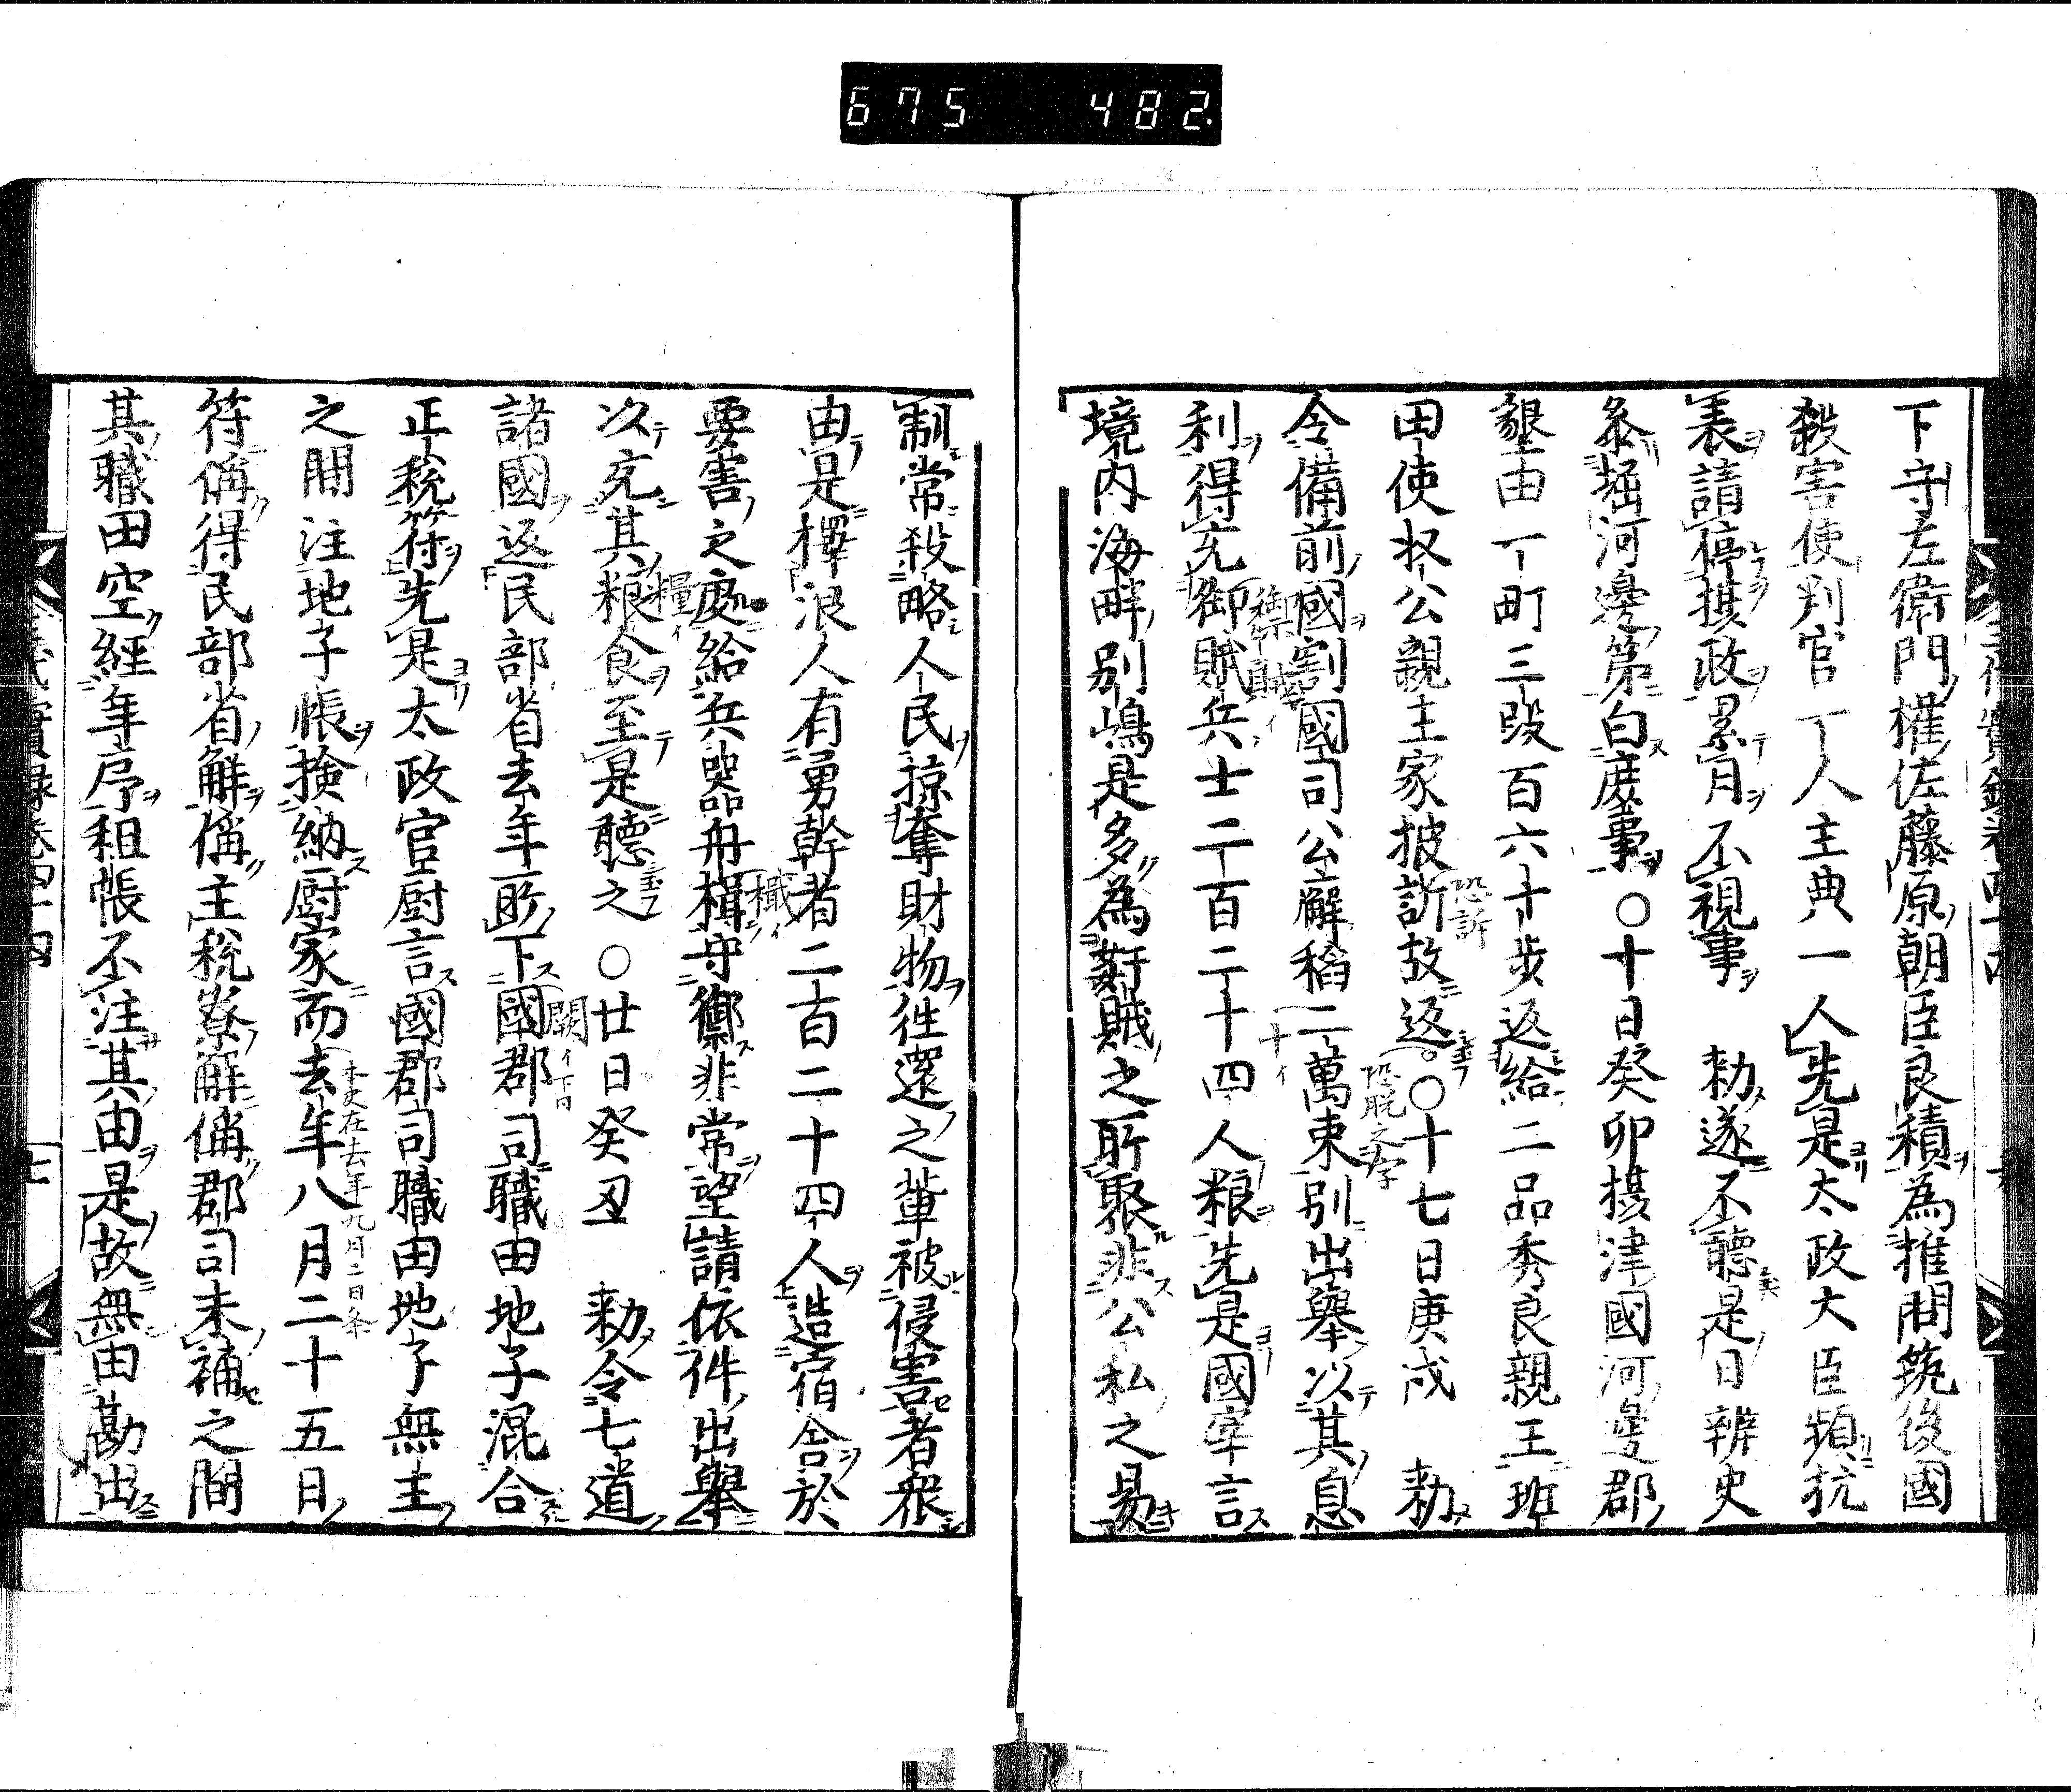 675 482
下守左衛門權佐藤原朝臣良積為推問筑後國
殺害使判官一人主典一人先是太政大臣頻抗
表請停攝政累月不視事 勅遂不聽是日辨史
參堀河邊第白庶事○十日癸卯攝津國河邊郡
墾田一町三段百六十歩返給二品秀良親王班
田使收公親主家披訴故返○十七日庚戌 勅
恐訴
恐脱之字
令備前國割國司公廨稲二萬束別出擧以其息
十イ
利得充御賊兵士二百二十四人粮先是國宰言
禦賊イ
境内海畔別嶋是多為奸賊之所聚非公私之易
制常殺略人民掠奪財物往還之輩被侵害者衆
由是擇浪人有勇幹者二百二十四人造宿舎於
要害之處給兵器舟楫守禦非常望請依件出擧
檝イ
以充其粮食至是聽之○廿日癸丑 勅令七道
糧イ
諸國返民部省去年所下國郡司職田地子混合
闕イ
正税符先是太政官厨言國郡司職田地子無主
之間注地子帳撿納厨家而去年八月二十五日
本史在去年九月二日条
符偁得民部省解偁主税寮解偁郡司未補之間
其職田空經年序租帳不注其由是故無由勘出